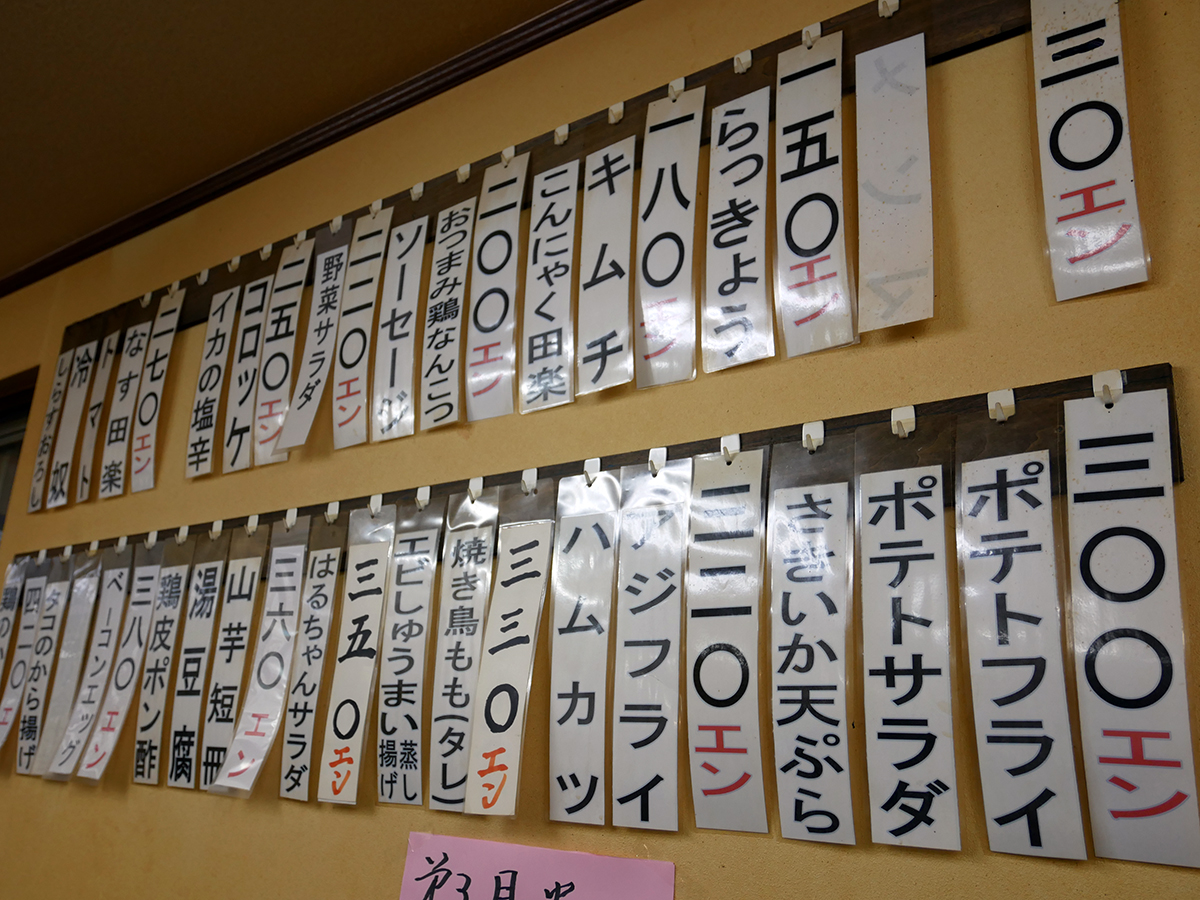 三〇エン
メンマ
一五〇エン
らっきょう
一八〇エン
キムチ
こんにゃく田楽
二〇〇エン
おつまみ鶏なんこつ
ソーセージ
二二〇エン
野菜サラダ
二五〇エン
コロッケ
イカの塩辛
二七〇エン
なす田楽
トマト
冷奴
しらすおろし
三〇〇エン
ポテトフライ
ポテトサラダ
さきいか天ぷら
三二〇エン
アジフライ
ハムカツ
三三〇エン
焼き鳥もも(タレ)
エビしゅうまい蒸し揚げ
三五〇エン
はるちゃんサラダ
三六〇エン
山芋短冊
湯豆腐
鶏皮ポン酢
三八〇エン
ベーコンエッグ
タコのから揚げ
四二〇エン